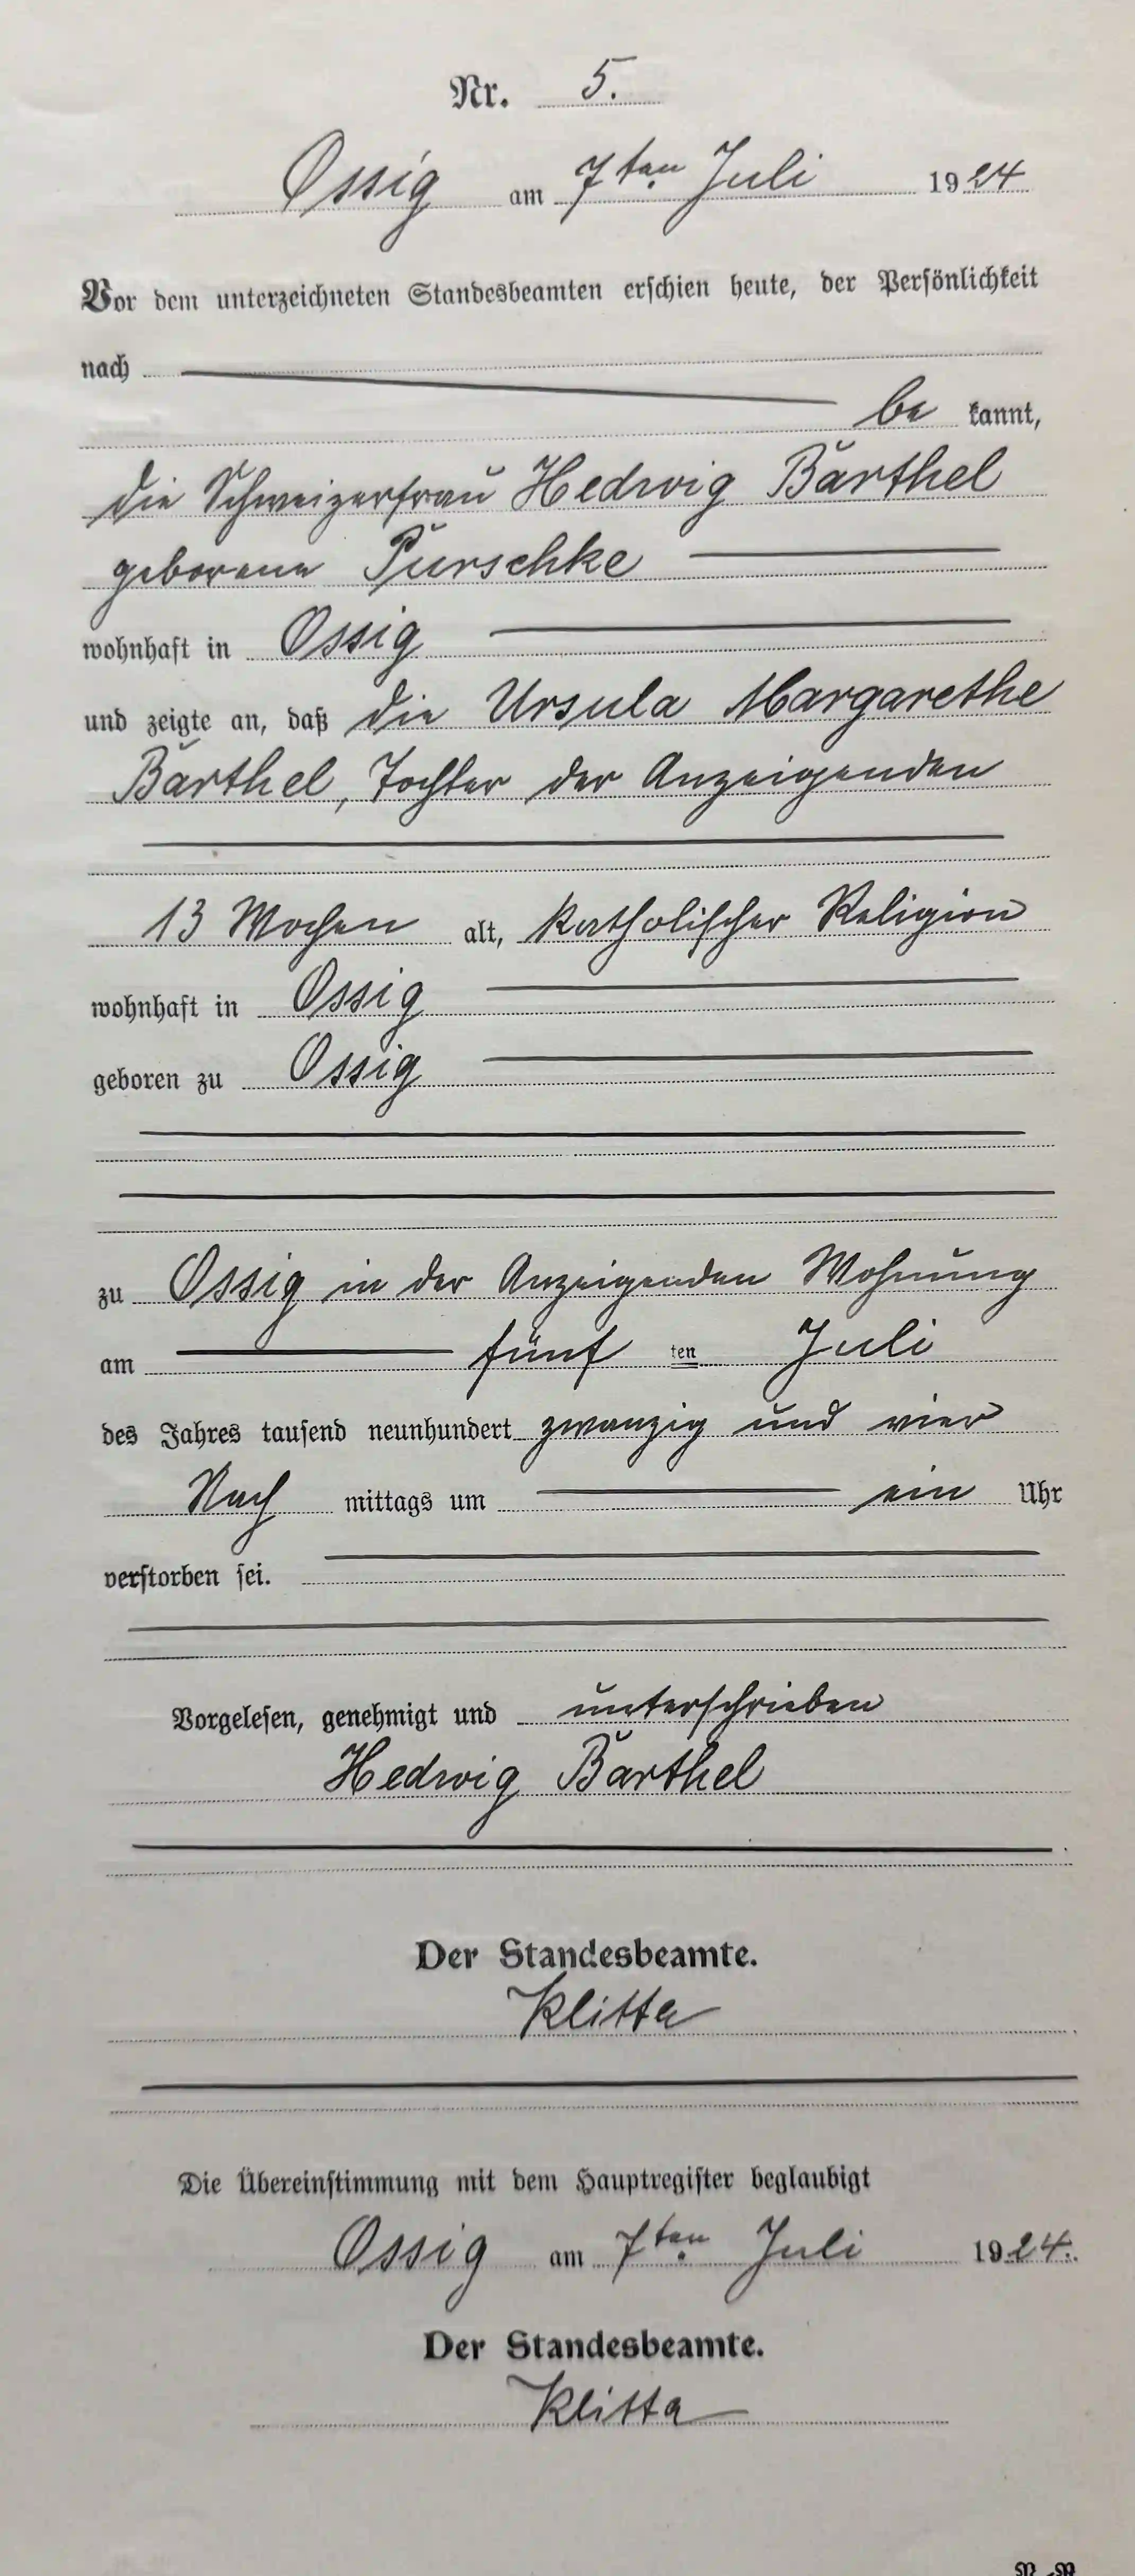 Nr. 5.
Ossig am 7ten Juli 1924
Vor dem unterzeichneten Standesbeamten erschien heute, der Persönlichkeit
nach
be kannt,
die Schweizerfrau Hedwig Barthel
geborene Purschke
wohnhaft in Ossig
und zeigte an, daß die Ursula Margarethe
Barthel, Tochter der Anzeigenden
13 Wochen alt, katholischer Religion
wohnhaft in Ossig
geboren zu Ossig
zu Ossig in der Anzeigenden Wohnung
am fünf ten Juli
des Jahres tausend neunhundert zwanzig und vier
Nach mittags um ein Uhr
verstorben sei.
Vorgelesen, genehmigt und unterschrieben
Hedwig Barthel
Der Standesbeamte.
Klitta
Die Übereinstimmung mit dem Hauptregister beglaubigt
Ossig am 7ten Juli 1924.
Der Standesbeamte.
Klitta